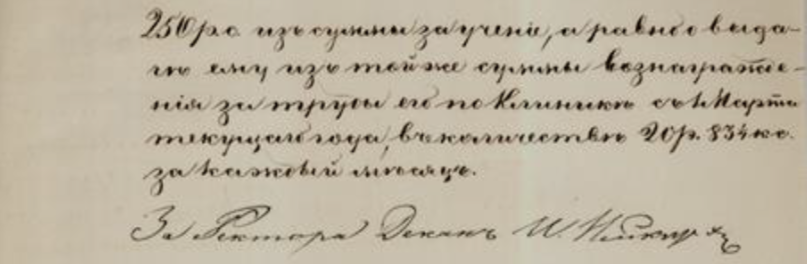 250 р. с. изъ суммы за ученіе, а равно о выда-
чѣ ему изъ той же суммы вознагражде-
нія за труды его по Клиникѣ съ 1 Марта
текущаго года, въ количествѣ 20 р. 83 4 к. с.
за каждый мѣсяцъ.
За Ректора Деканъ И.